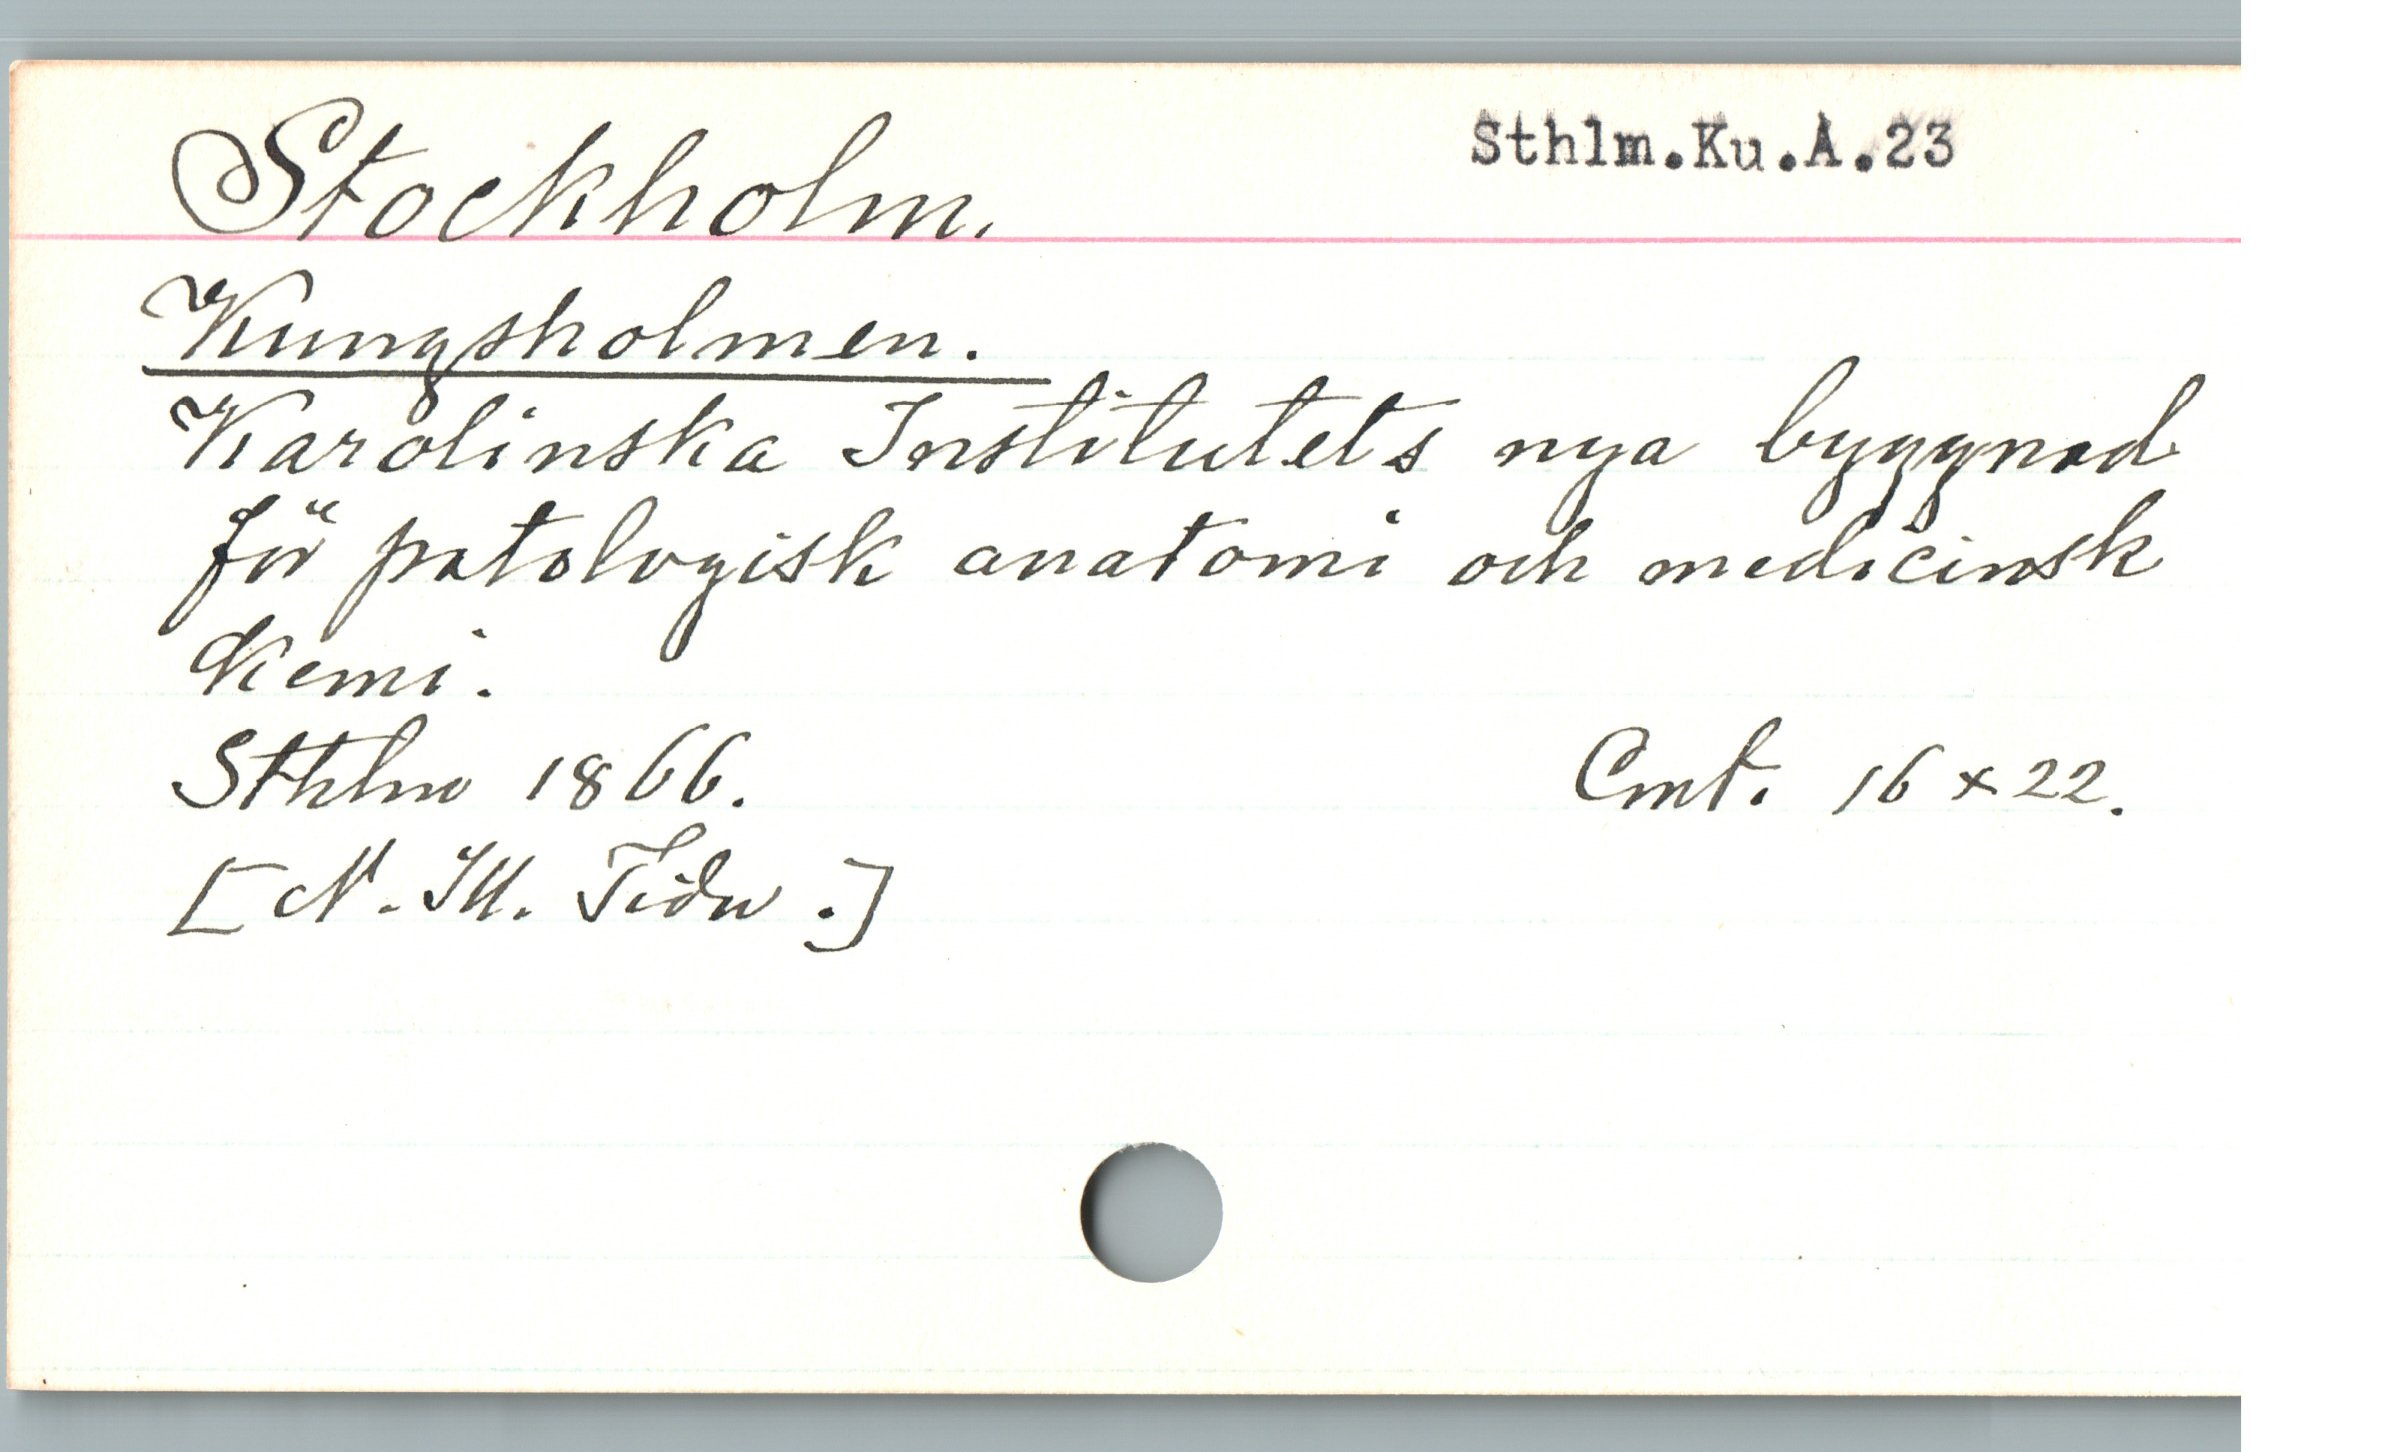 Stockholm. Sthlm.Ku.A.23
Kungsholmen.
Karolinska Institutets nya byggnad
för patologisk anatomi och medicinsk
Kemi.
Sthlm 1866. Cmt. 16 x 22.
[N. Ill. Tidn.]